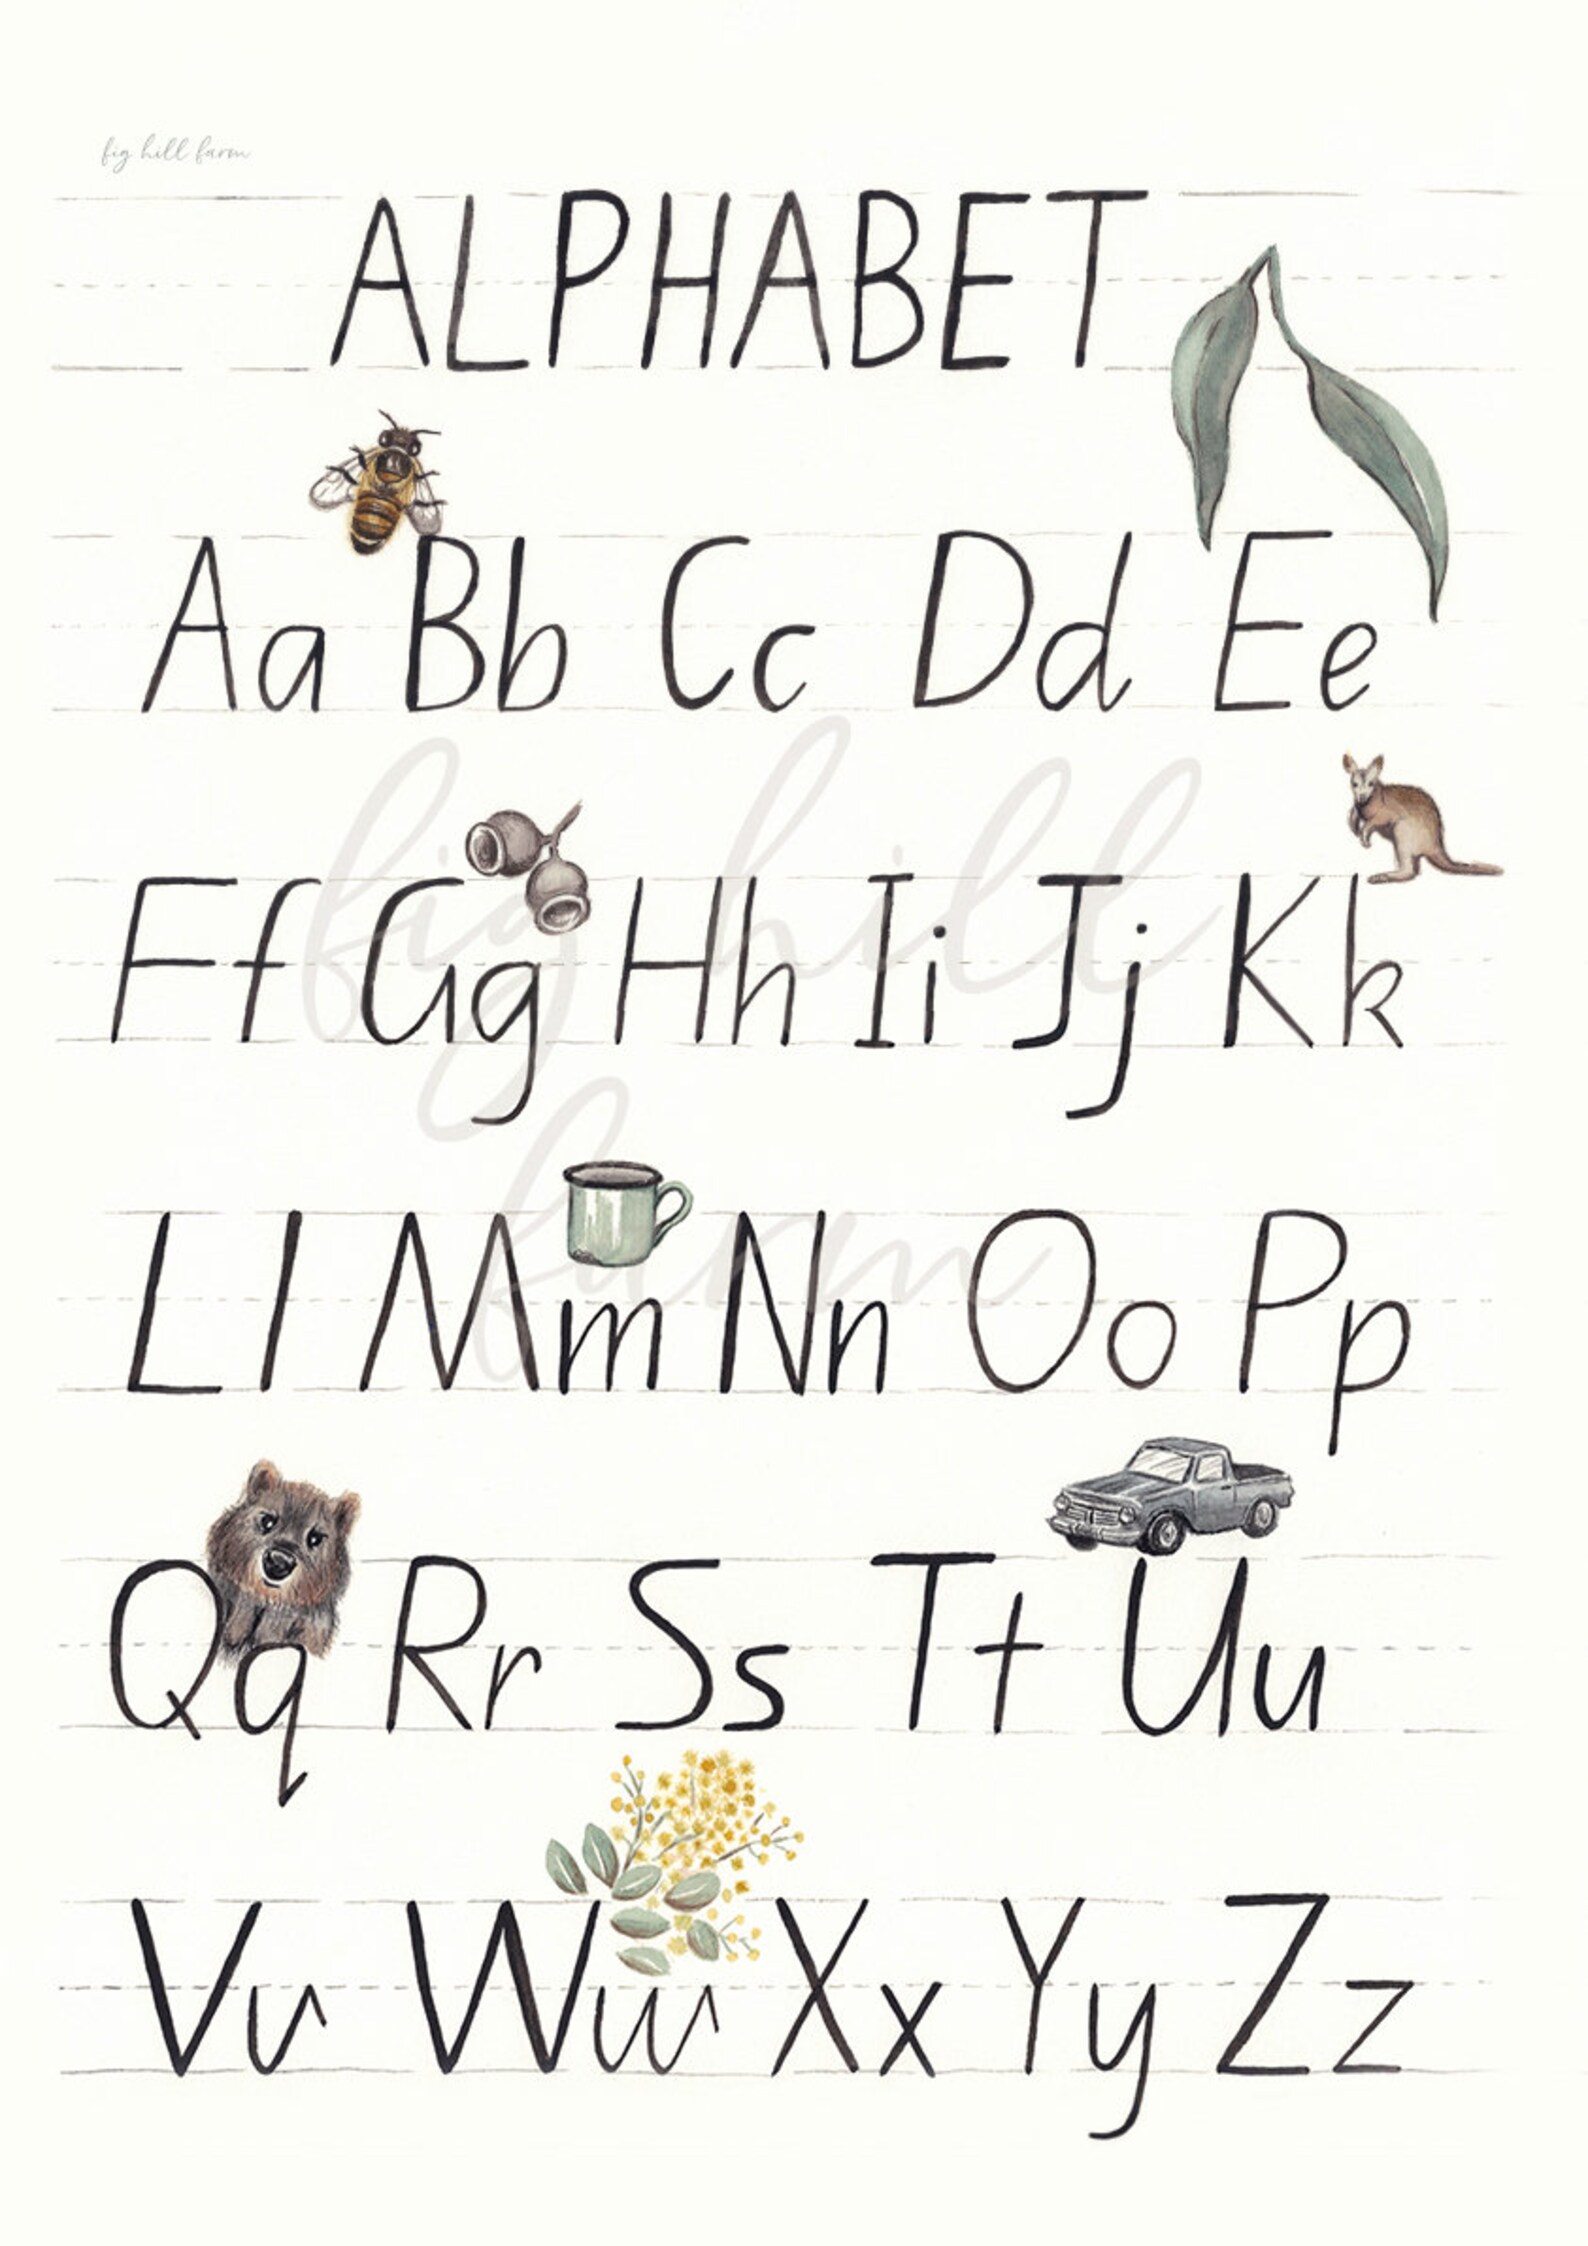 fig hill farm
ALPHABET
Aa Bb Cc Dd Ee
Ff Gg Hh Ii Jj Kk
fig hill
farm
Ll Mm Nn Oo Pp
Qq Rr Ss Tt Uu
Vv Ww Xx Yy Zz